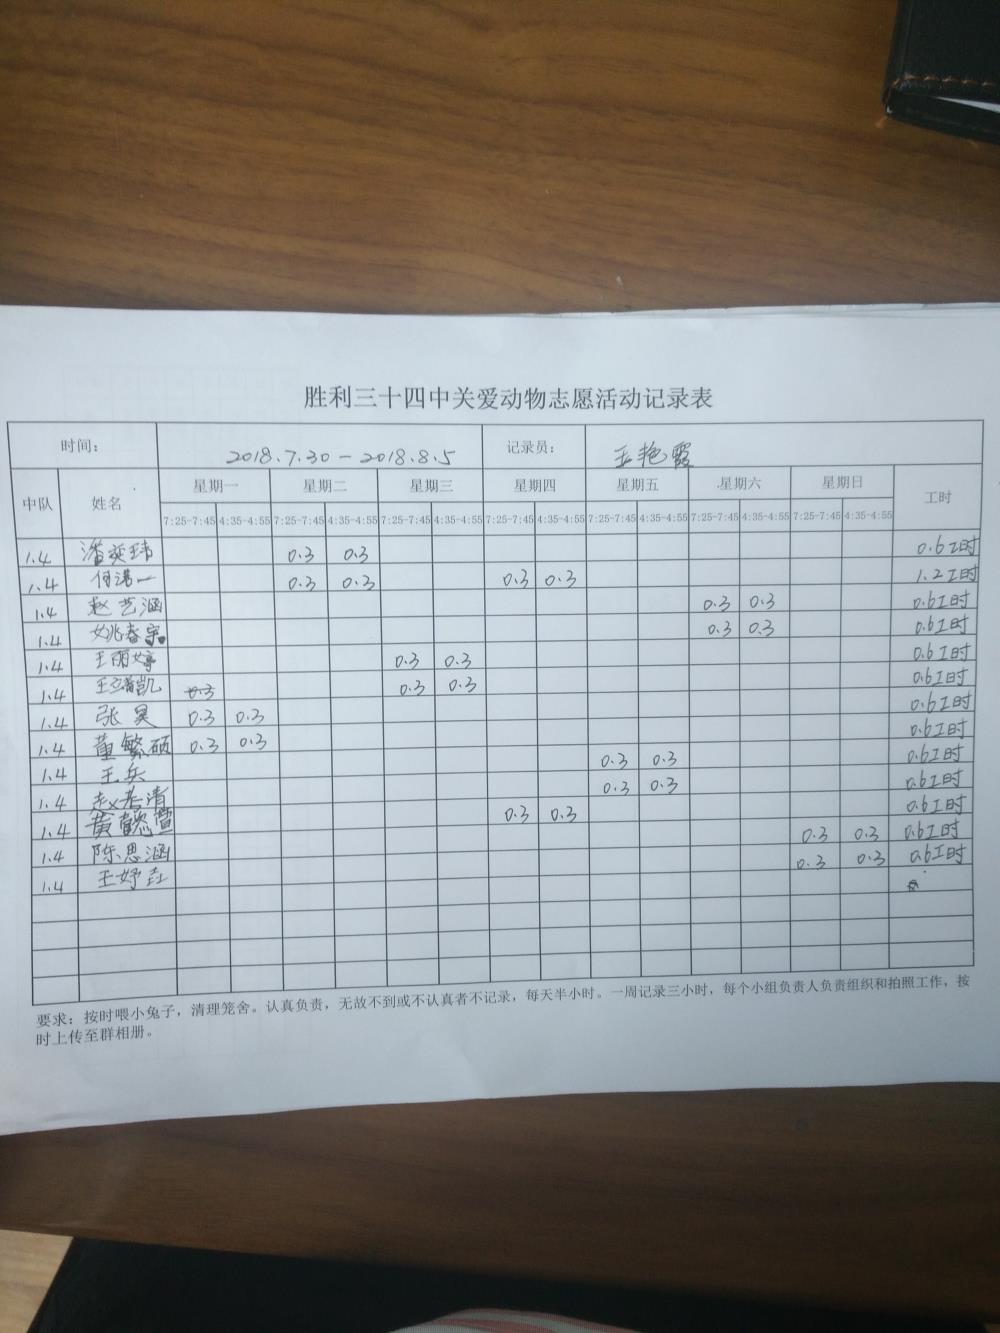 胜利三十四中关爱动物志愿活动记录表
时间： 2018.7.30-2018.8.5 记录员： 王艳霞
中队 姓名 星期一 星期二 星期三 星期四 星期五 星期六 星期日 工时
7:25-7:45 4:35-4:55 7:25-7:45 4:35-4:55 7:25-7:45 4:35-4:55 7:25-7:45 4:35-4:55 7:25-7:45 4:35-4:55 7:25-7:45 4:35-4:55 7:25-7:45 4:35-4:55
1.4 潘奕玮 0.3 0.3 0.6工时
1.4 一 0.3 0.3 0.3 0.3 1.2工时
1.4 赵艺涵 0.3 0.3 0.6工时
1.4 姚春宗 0.3 0.3 0.6工时
1.4 王丽婷 0.3 0.3 0.6工时
1.4 王凯 0.3 0.3 0.3 0.6工时
1.4 张昊 0.3 0.3 0.6工时
1.4 董繁硕 0.3 0.3 0.6工时
1.4 王兵 0.3 0.3 0.6工时
1.4 赵清 0.3 0.3 0.6工时
1.4 黄懿萱 0.3 0.3 0.6工时
1.4 陈思涵 0.3 0.3 0.6工时
1.4 王妤 0.3 0.3 0.6工时
要求：按时喂小兔子，清理笼舍。认真负责，无故不到或不认真者不记录，每天半小时。一周记录三小时，每个小组负责人负责组织和拍照工作，按
时上传至群相册。